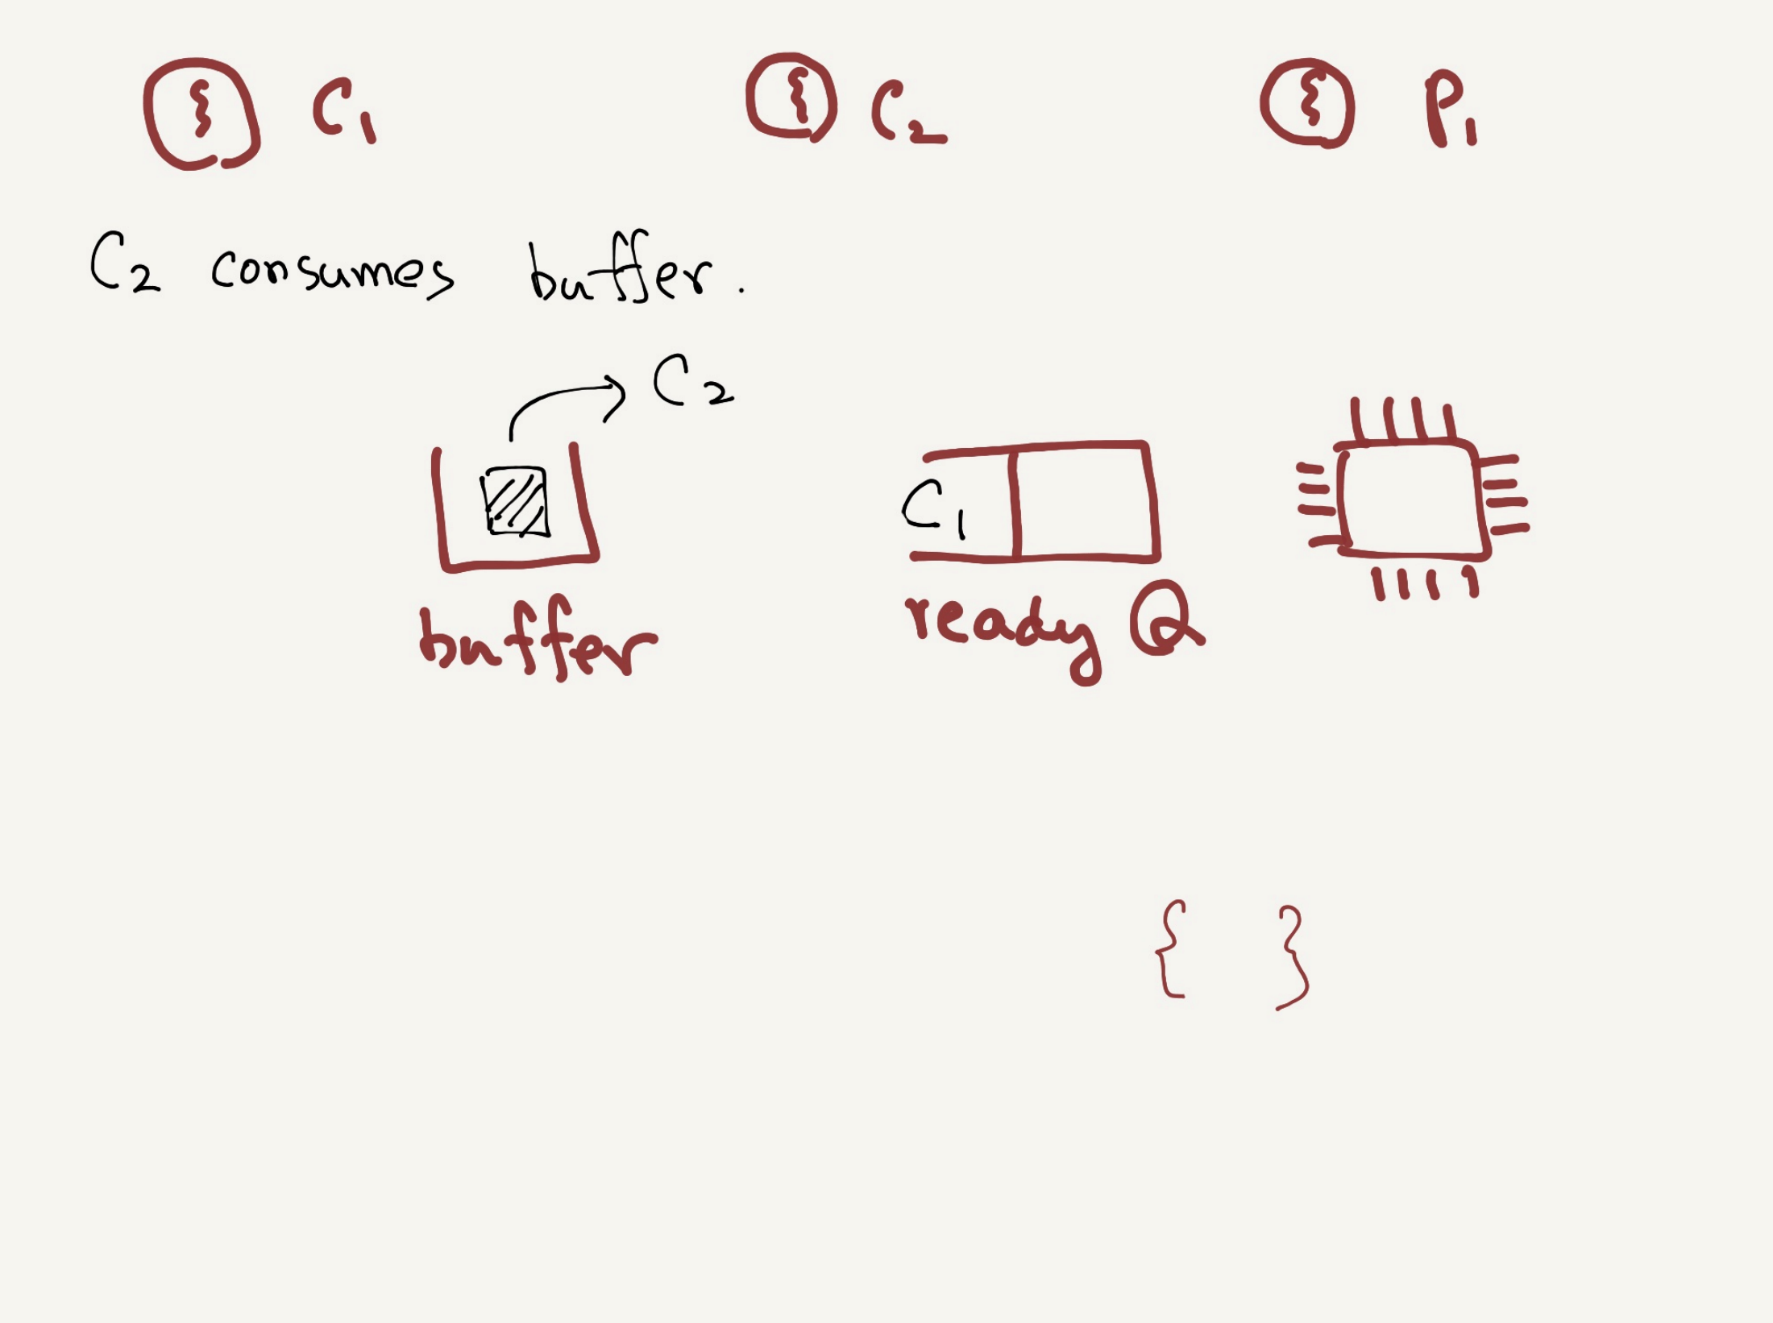 C1 C2 P1
C2 consumes buffer.
C2
C1
buffer ready Q
{ }